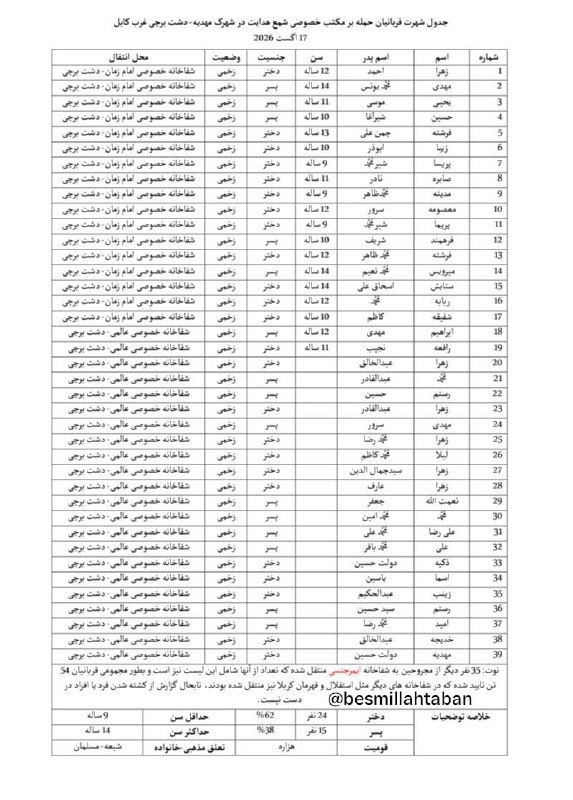 جدول شهرت قربانیان حمله بر مکتب خصوصی شمع هدایت در شهرک مهدیه-دشت برچی غرب کابل
17 اگست 2026
شماره اسم اسم پدر سن جنسیت وضعیت محل انتقال
1 زهرا احمد 12 ساله دختر زخمی شفاخانه خصوصی امام زمان- دشت برچی
2 مهدی محمد یونس 14 ساله پسر زخمی شفاخانه خصوصی امام زمان- دشت برچی
3 یحیی موسی 11 ساله پسر زخمی شفاخانه خصوصی امام زمان- دشت برچی
4 حسین شیرآغا 10 ساله پسر زخمی شفاخانه خصوصی امام زمان- دشت برچی
5 فرشته چمن علی 13 ساله دختر زخمی شفاخانه خصوصی امام زمان- دشت برچی
6 زیبا ابوذر 10 ساله دختر زخمی شفاخانه خصوصی امام زمان- دشت برچی
7 پریسا شیر محمد 9 ساله دختر زخمی شفاخانه خصوصی امام زمان- دشت برچی
8 صابره نادر 11 ساله دختر زخمی شفاخانه خصوصی امام زمان- دشت برچی
9 مدینه محمدظاهر 9 ساله دختر زخمی شفاخانه خصوصی امام زمان- دشت برچی
10 معصومه سرور 12 ساله دختر زخمی شفاخانه خصوصی امام زمان- دشت برچی
11 پریما شیر محمد 9 ساله دختر زخمی شفاخانه خصوصی امام زمان- دشت برچی
12 فرهمند شریف 10 ساله پسر زخمی شفاخانه خصوصی امام زمان- دشت برچی
13 فرشته محمد ظاهر 12 ساله دختر زخمی شفاخانه خصوصی امام زمان- دشت برچی
14 میرویس محمد نعیم 14 ساله پسر زخمی شفاخانه خصوصی امام زمان- دشت برچی
15 ستایش اسحاق علی 14 ساله دختر زخمی شفاخانه خصوصی امام زمان- دشت برچی
16 ربابه محمد 12 ساله دختر زخمی شفاخانه خصوصی امام زمان- دشت برچی
17 شفیقه کاظم 10 ساله دختر زخمی شفاخانه خصوصی امام زمان- دشت برچی
18 ابراهیم مهدی 12 ساله پسر زخمی شفاخانه خصوصی عالمی- دشت برچی
19 رافعه نجیب 11 ساله دختر زخمی شفاخانه خصوصی عالمی- دشت برچی
20 زهرا عبدالخالق دختر زخمی شفاخانه خصوصی عالمی- دشت برچی
21 محمد عبدالقادر پسر زخمی شفاخانه خصوصی عالمی- دشت برچی
22 رستم حسین پسر زخمی شفاخانه خصوصی عالمی- دشت برچی
23 زهرا عبدالقادر دختر زخمی شفاخانه خصوصی عالمی- دشت برچی
24 مهدی سرور پسر زخمی شفاخانه خصوصی عالمی- دشت برچی
25 زهرا محمد رضا دختر زخمی شفاخانه خصوصی عالمی- دشت برچی
26 لیلا محمد کاظم دختر زخمی شفاخانه خصوصی عالمی- دشت برچی
27 زهرا سیدجمال الدین دختر زخمی شفاخانه خصوصی عالمی- دشت برچی
28 زهرا عارف دختر زخمی شفاخانه خصوصی عالمی- دشت برچی
29 نعمت الله جعفر پسر زخمی شفاخانه خصوصی عالمی- دشت برچی
30 محمد محمد امین پسر زخمی شفاخانه خصوصی عالمی- دشت برچی
31 علی رضا محمد علی پسر زخمی شفاخانه خصوصی عالمی- دشت برچی
32 علی محمد باقر پسر زخمی شفاخانه خصوصی عالمی- دشت برچی
33 ذکیه دولت حسین دختر زخمی شفاخانه خصوصی عالمی- دشت برچی
34 اسما یاسین دختر زخمی شفاخانه خصوصی عالمی- دشت برچی
35 زینب عبدالحکیم دختر زخمی شفاخانه خصوصی عالمی- دشت برچی
36 رستم سید حسین پسر زخمی شفاخانه خصوصی عالمی- دشت برچی
37 امید محمد رضا پسر زخمی شفاخانه خصوصی عالمی- دشت برچی
38 خدیجه عبدالخالق دختر زخمی شفاخانه خصوصی عالمی- دشت برچی
39 مهدیه دولت حسین دختر زخمی شفاخانه خصوصی عالمی- دشت برچی
نوت: 35 نفر دیگر از مجروحین به شفاخانه ایمرجنسی منتقل شده که تعداد از آنها شامل این لیست نیز است و بطور مجموعی قربانیان 54
تن تایید شده که در شفاخانه های دیگر مثل استقلال و قهرمان کربلا نیز منتقل شده بودند، تابحال گزارش از کشته شدن فرد یا افراد در
دست نیست.
@besmillahtaban
خلاصه توضحیات دختر 24 نفر 62% حداقل سن 9 ساله
پسر 15 نفر 38% حداکثر سن 14 ساله
قومیت هزاره تعلق مذهبی-خانواده شیعه-مسلمان